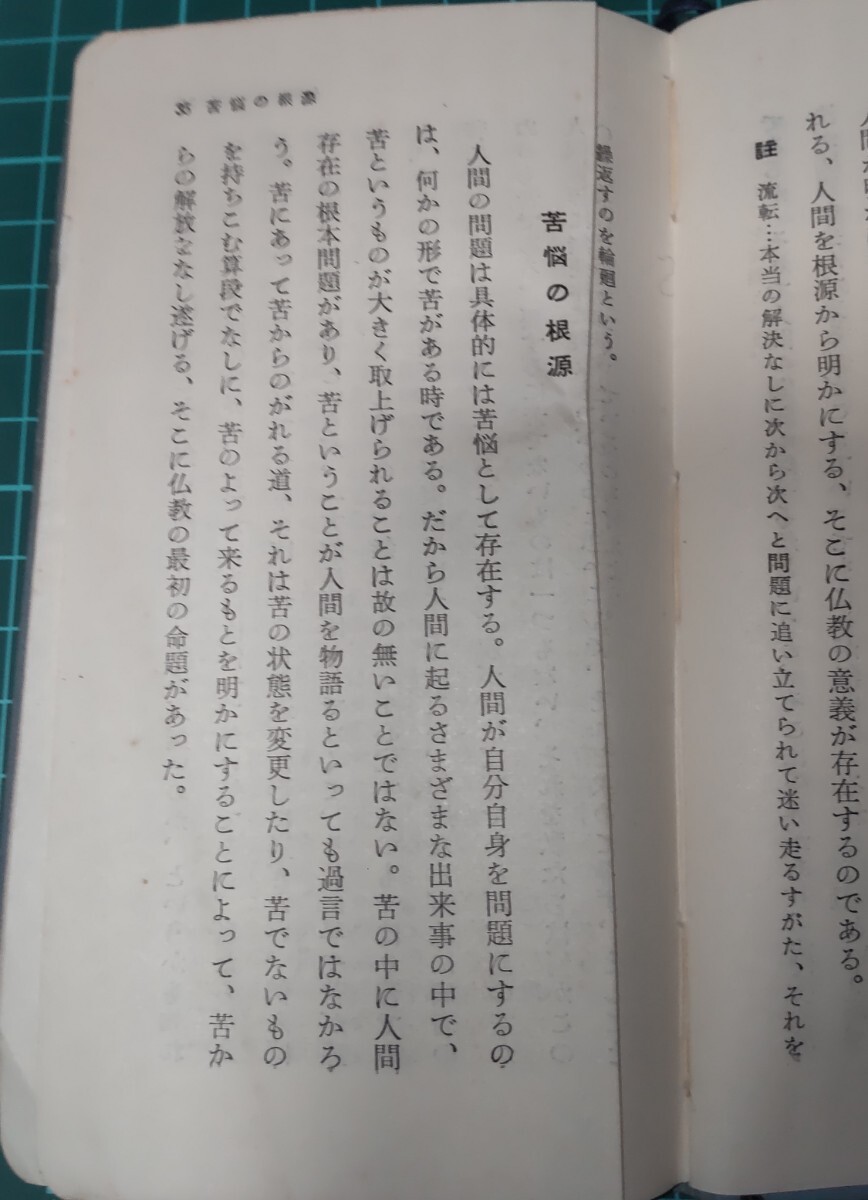 れる、人間を根源から明かにする、そこに仏教の意義が存在するのである。
註 流転…本当の解決なしに次から次へと問題に追い立てられて迷い走るすがた、それを
繰返すのを輪廻という。
苦悩の根源
人間の問題は具体的には苦悩として存在する。人間が自分自身を問題にするの
は、何かの形で苦がある時である。だから人間に起るさまざまな出来事の中で、
苦というものが大きく取上げられることは故の無いことではない。苦の中に人間
存在の根本問題があり、苦ということが人間を物語るといっても過言ではなかろ
う。苦にあって苦からのがれる道、それは苦の状態を変更したり、苦でないもの
を持ちこむ算段でなしに、苦のよって来るもとを明かにすることによって、苦か
らの解放をなし遂げる、そこに仏教の最初の命題があった。
35 苦悩の根源